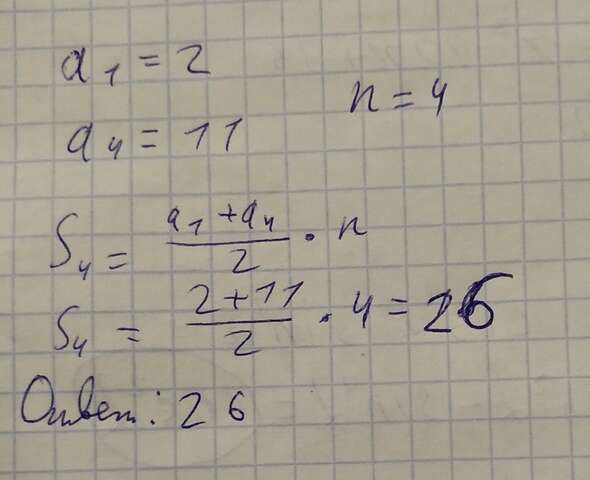 a₁ = 2
n = 4
a₄ = 11
S₄ = (a₁ + a₄)/2 · n
S₄ = (2 + 11)/2 · 4 = 26
Ответ: 26